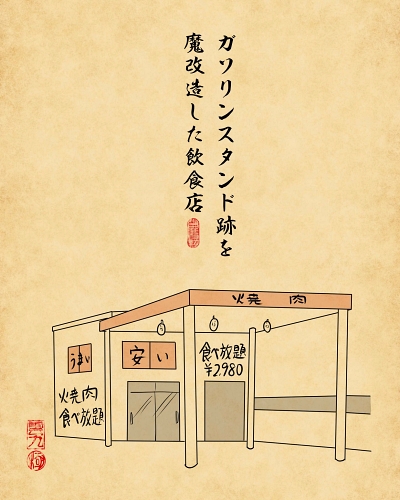 ガソリンスタンド跡を
魔改造した飲食店
焼肉
うまい
安い
食べ放題
¥2,980
焼肉
食べ放題